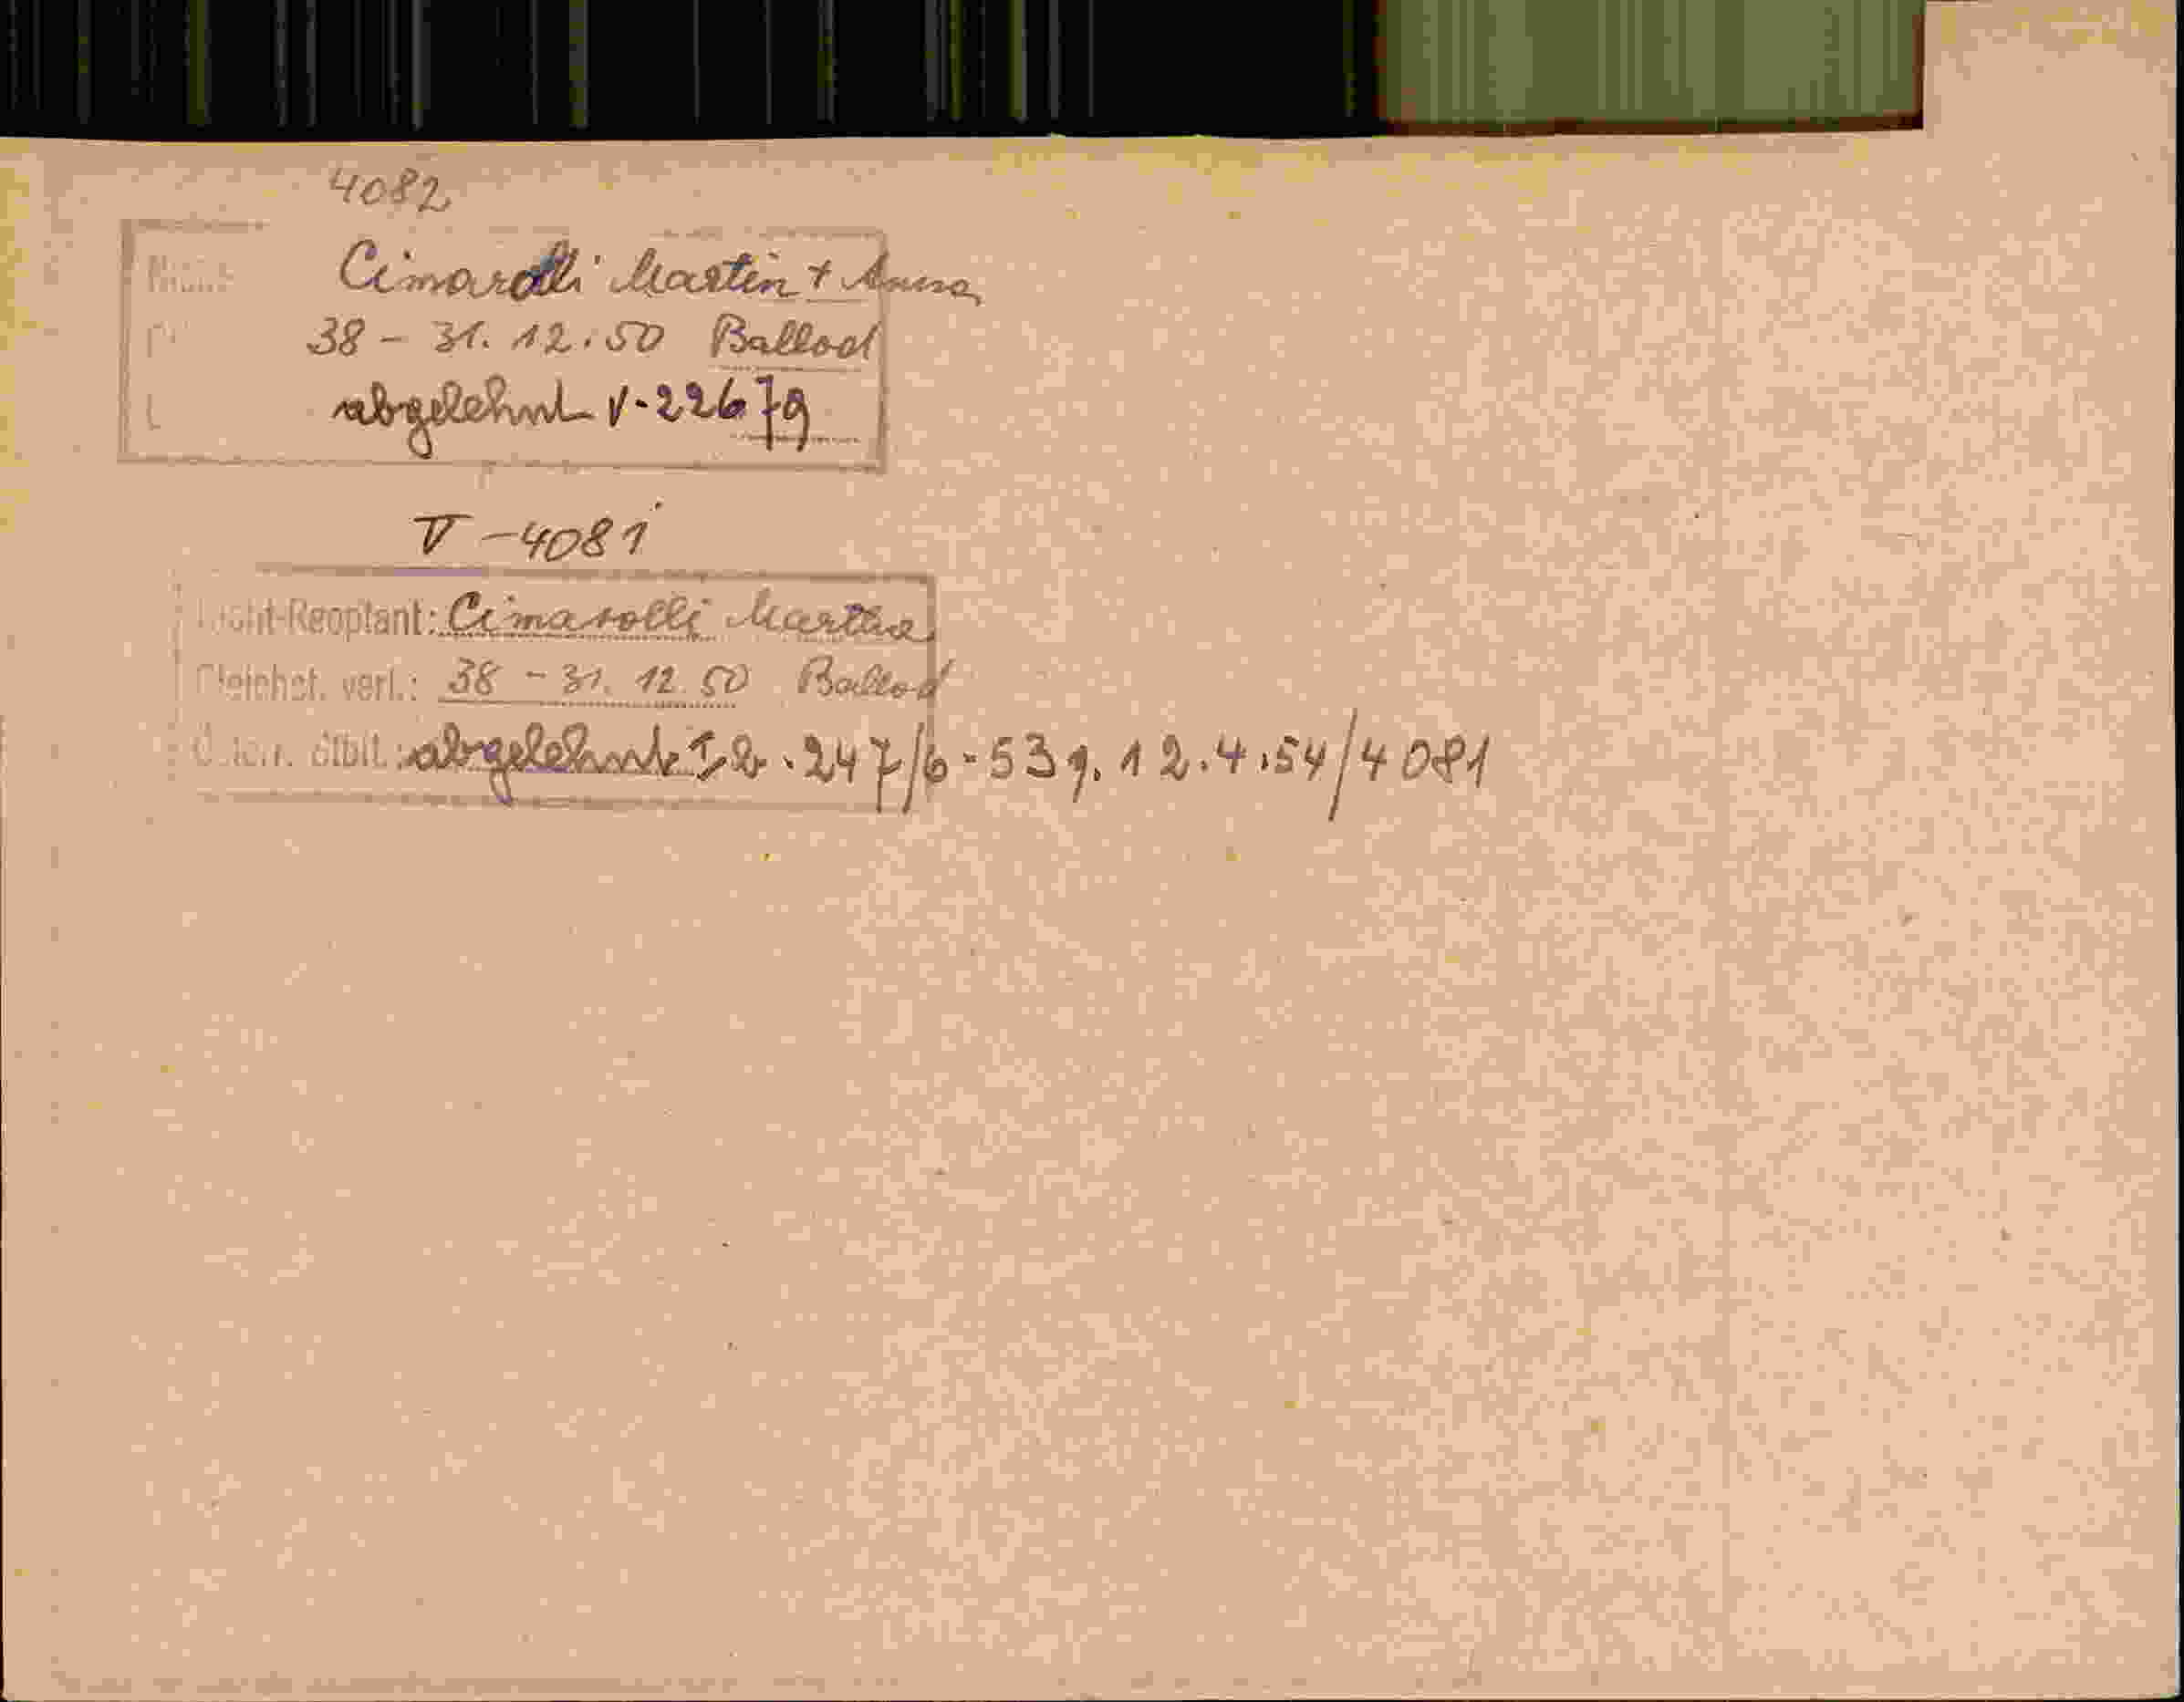 4082
Cimarolli Martin + Anna
38 - 31. 12. 50 Ballod
abgelehnt V-22679
V - 4081
Nicht-Reoptant: Cimarolli Martha
Gleichst. verl.: 38 - 31. 12. 50 Ballod
abgelehnt 247/6-53 12.4.54/4081